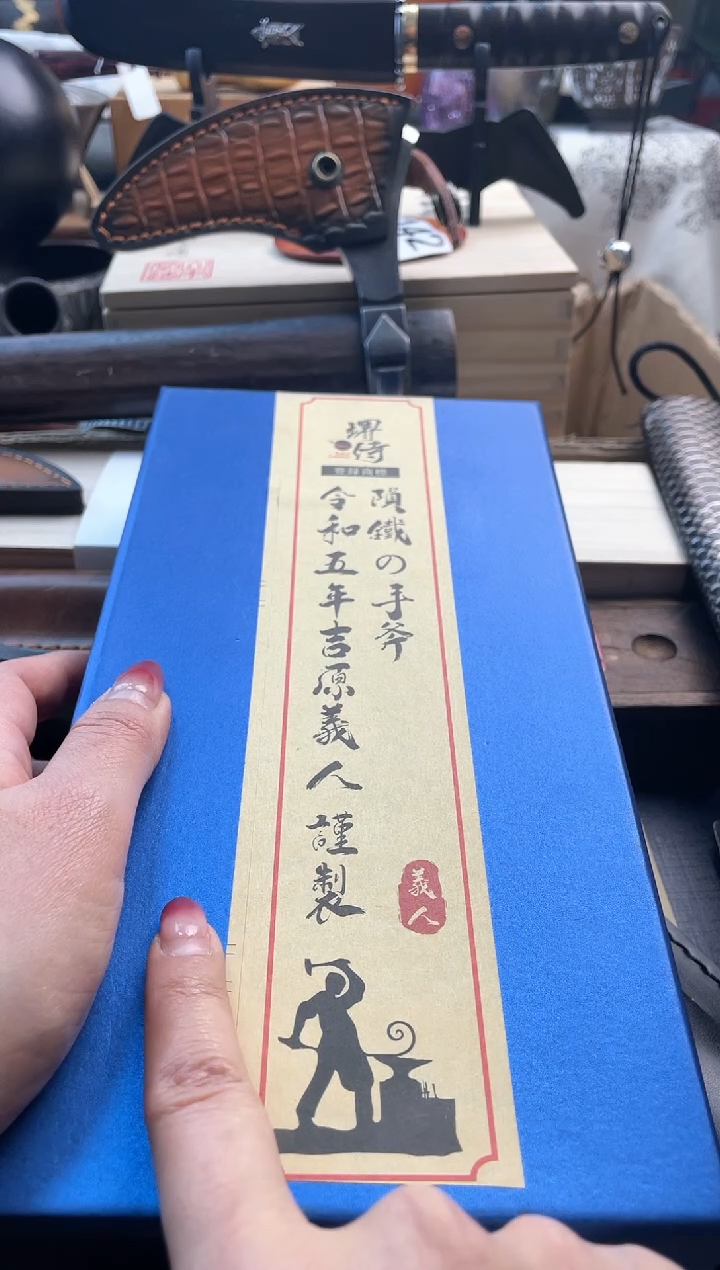 堺
侍
登録商標
隕鐵の手斧
令和五年吉原義人 謹製
義人
42